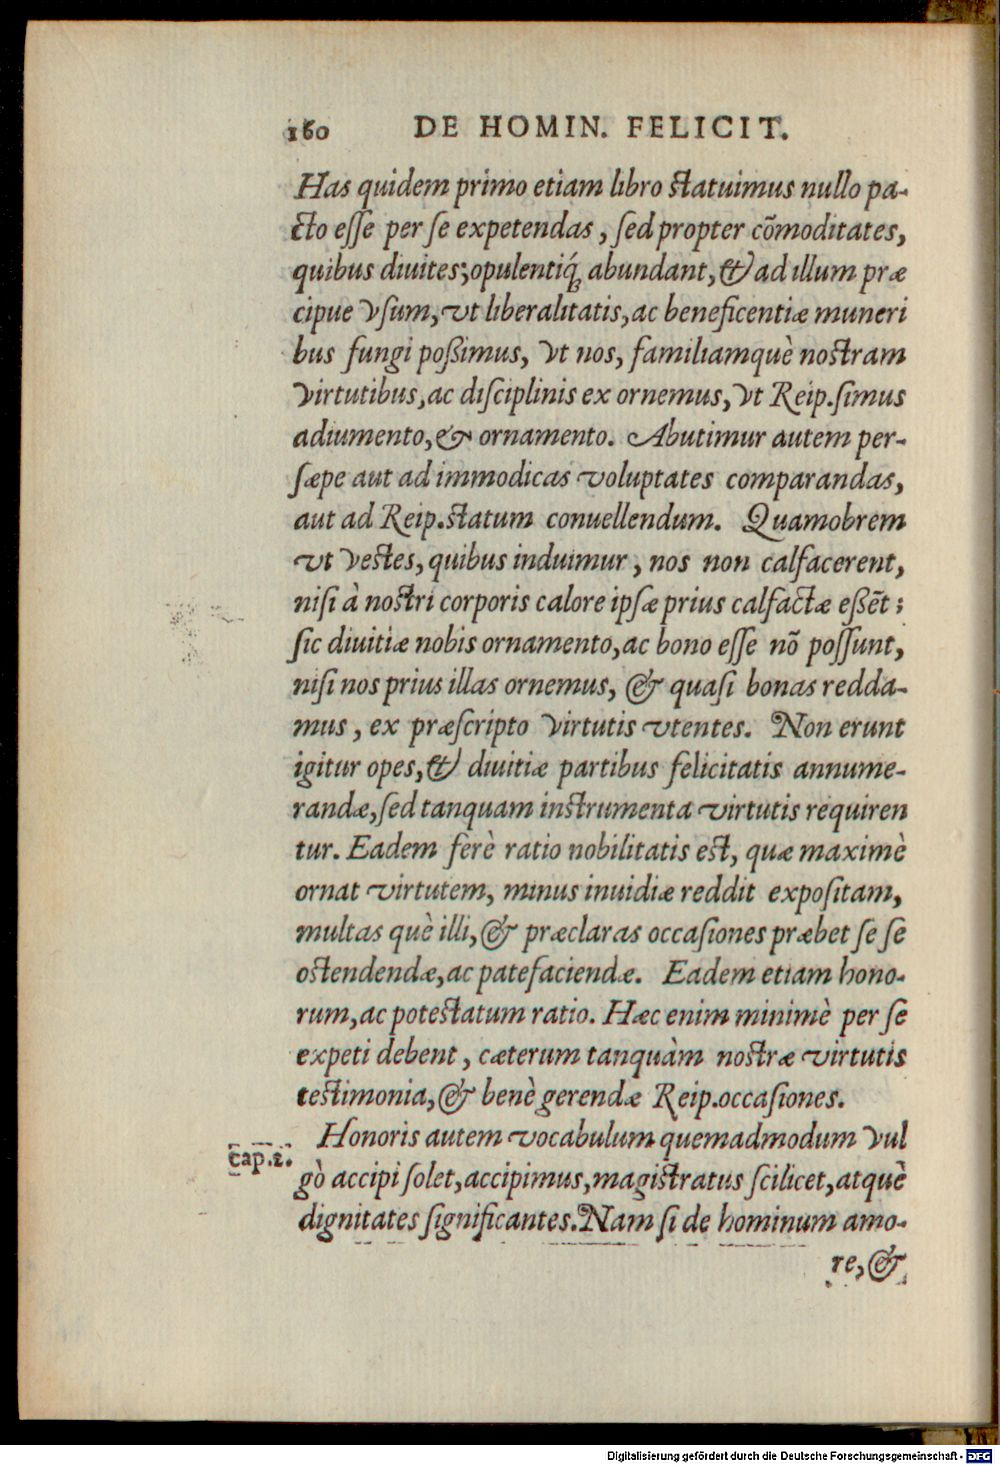 160 DE HOMIN. FELICIT.
Has quidem primo etiam libro ſtatuimus nullo pa-
cto eſſe per ſe expetendas, ſed propter cõmoditates,
quibus diuites; opulentiq́; abundant, & ad illum præ
cipue vſum, vt liberalitatis, ac beneficentiæ muneri
bus fungi poßimus, vt nos, familiamquè noſtram
virtutibus, ac diſciplinis ex ornemus, vt Reip. ſimus
adiumento, & ornamento. Abutimur autem per-
ſæpe aut ad immodicas voluptates comparandas,
aut ad Reip. ſtatum conuellendum. Quamobrem
vt veſtes, quibus induimur, nos non calfacerent,
niſi à noſtri corporis calore ipſæ prius calfactæ eßẽt;
ſic diuitiæ nobis ornamento, ac bono eſſe nõ poſſunt,
niſi nos prius illas ornemus, & quaſi bonas redda-
mus, ex præſcripto virtutis vtentes. Non erunt
igitur opes, & diuitiæ partibus felicitatis annume-
randæ, ſed tanquam inſtrumenta virtutis requiren
tur. Eadem ferè ratio nobilitatis eſt, quæ maximè
ornat virtutem, minus inuidiæ reddit expoſitam,
multas què illi, & præclaras occaſiones præbet ſe ſe
oſtendendæ, ac patefaciendæ. Eadem etiam hono-
rum, ac poteſtatum ratio. Hæc enim minimè per ſe
expeti debent, cæterum tanquàm noſtræ virtutis
teſtimonia, & benè gerendæ Reip. occaſiones.
Honoris autem vocabulum quemadmodum vul
cap.2.
gò accipi ſolet, accipimus, magiſtratus ſcilicet, atquè
dignitates ſignificantes. Nam ſi de hominum amo-
re, &
Digitalisierung gefördert durch die Deutsche Forschungsgemeinschaft - DFG